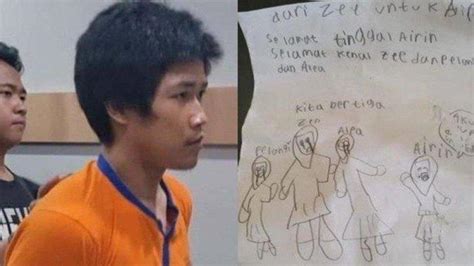 dari zee untuk
selamat tinggal Airin
selamat kenal zee dan pelangi
dan Alea
kita bertiga
zee
pelangi
Alea
Airin